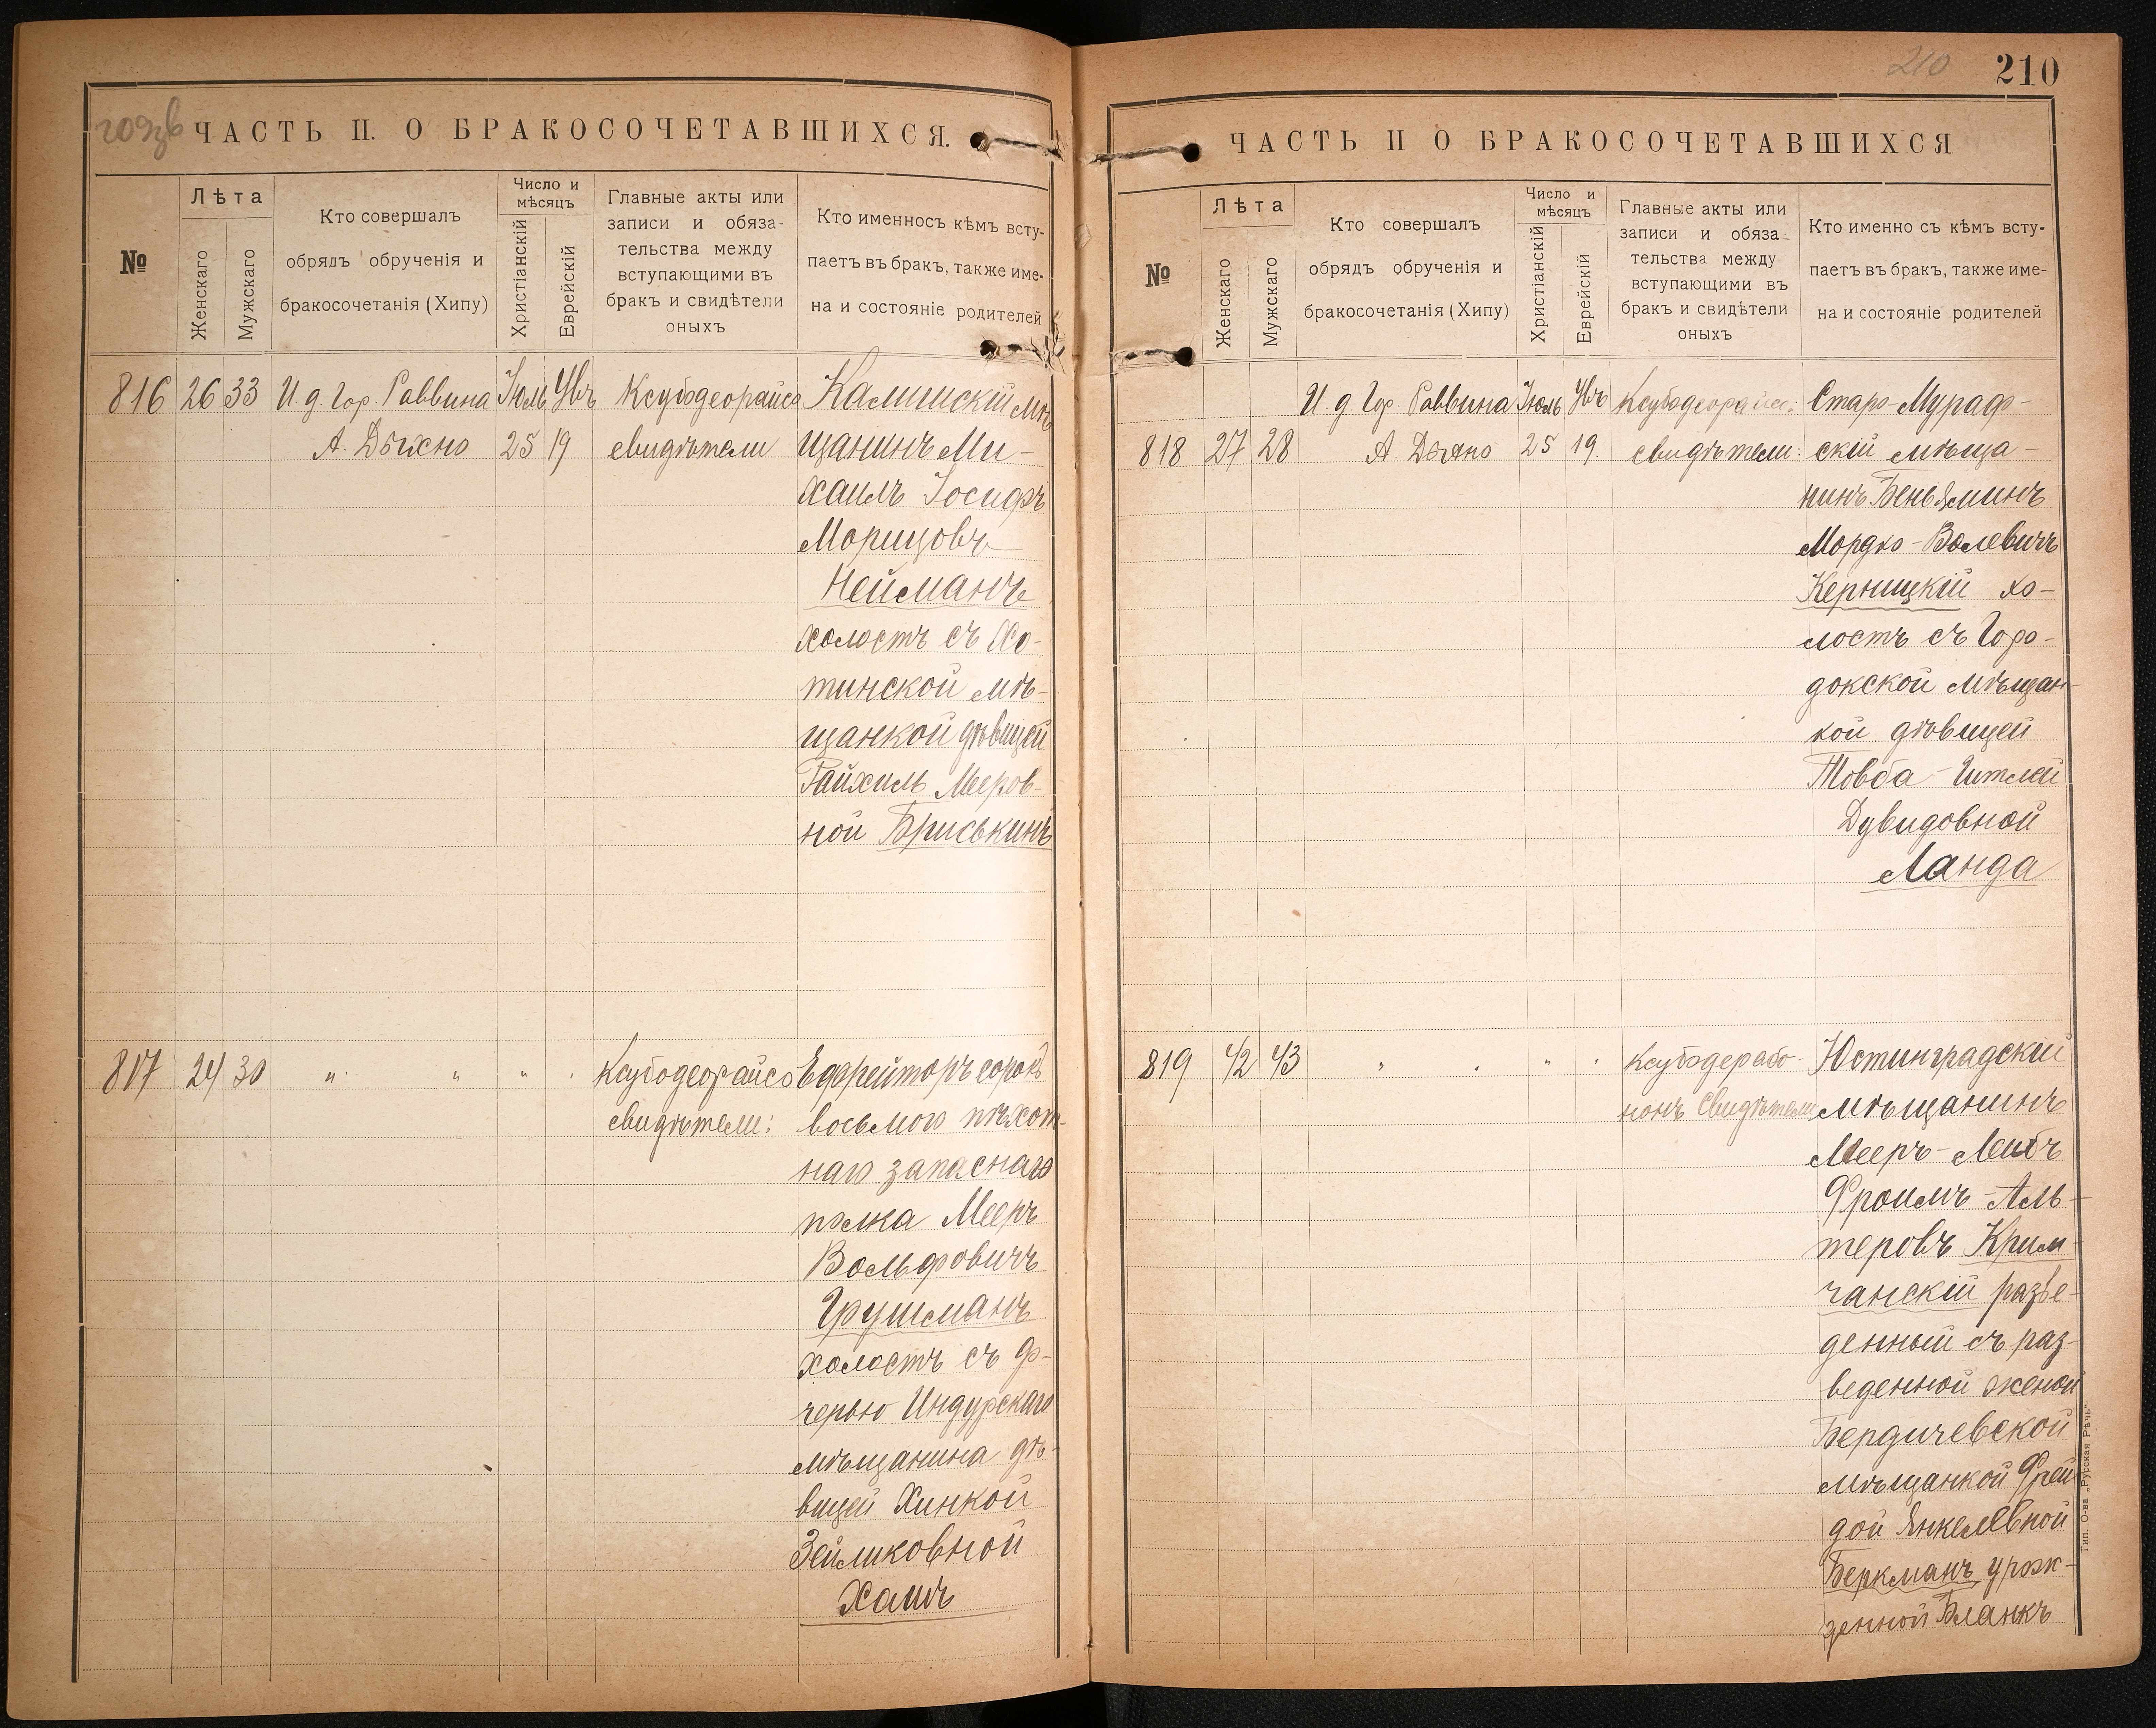 ЧАСТЬ II. О БРАКОСОЧЕТАВШИХСЯ.
№
Лѣта
Женскаго
Мужскаго
Кто совершалъ
обрядъ обрученія и
бракосочетанія (Хипу)
Число и
мѣсяцъ
Христіанскій
Еврейскій
Главные акты или
записи и обяза-
тельства между
вступающими въ
бракъ и свидѣтели
оныхъ
Кто именносъ кѣмъ всту-
паетъ въ бракъ, также име-
на и состояніе родителей
816 26 33 И д. Гор. Раввина Іюль
А. Дыхно 25 19 свидѣтели
Калишскій мѣ
щанинъ Ми-
хаилъ Іосифъ
Морицовъ
Нейманъ
холостъ съ Хо-
тинской мѣ-
щанкой дѣвицей
Райхиль Мееров-
ной Бриськинъ
817 24 30 " " " "
свидѣтели:
Ефрейторъ сорокъ
восьмого пѣхот-
наго запаснаго
полка Мееръ
Вольфовичъ
Грушманъ
холостъ съ до-
черью Индурскаго
мѣщанина дѣ-
вицей Хинкой
Зейликовной
Хаитъ
210
210
ЧАСТЬ II О БРАКОСОЧЕТАВШИХСЯ
№
Лѣта
Женскаго
Мужскаго
Кто совершалъ
обрядъ обрученія и
бракосочетанія (Хипу)
Число и
мѣсяцъ
Христіанскій
Еврейскій
Главные акты или
записи и обяза-
тельства между
вступающими въ
бракъ и свидѣтели
оныхъ
Кто именно съ кѣмъ всту-
паетъ въ бракъ, также име-
на и состояніе родителей
И. д Гор. Раввина Іюль
818 27 28 А Дыхно 25 19. свидѣтели:
Старо-Мураф-
скій мѣща-
нинъ Беньяминъ
Мордко-Волевичъ
Керницкій хо-
лостъ съ Горо-
докской мѣщан-
кой дѣвицей
Товба-Гитлей
Дувидовной
Ланда
819 42 43 " " "
свидѣтели
Юстинградскій
мѣщанинъ
Мееръ-Лейбъ
Фроимъ-Аль-
теровъ Крим-
чанскій разве-
денный съ раз-
веденной женой
Бердичевской
мѣщанкой Фрей
дой Янкелевной
Беркманъ, урож-
денной Бланкъ
Тип. О-ва „Русская Рѣчь"